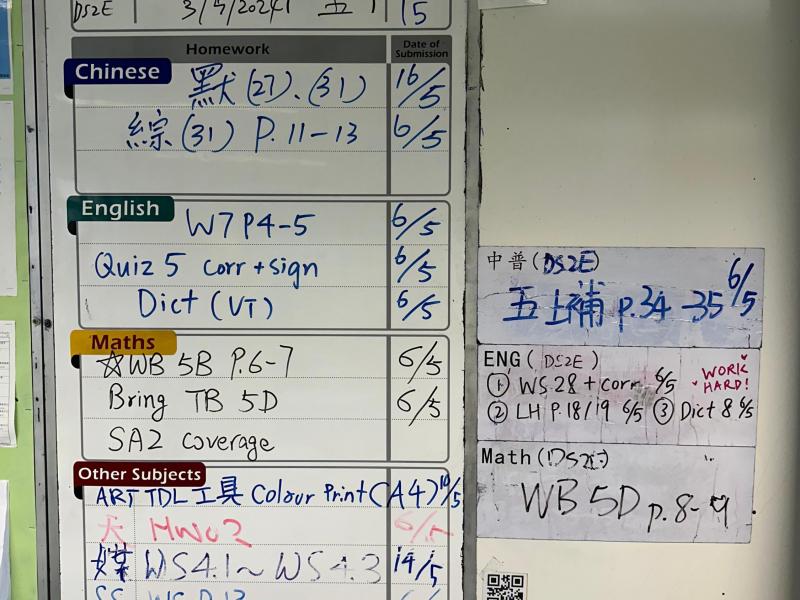 DS2E 3/5/2024 五 15
Homework Date of Submission
Chinese 默(27).(31) 16/5
綜(31) P.11-13 6/5
English W7 P4-5 6/5
Quiz 5 corr + sign 6/5
Dict (VT) 6/5
Maths ☆WB 5B P.6-7 6/5
Bring TB 5D 6/5
SA2 coverage
Other Subjects
ART TDL工具 Colour Print (A4) 10/5
HW02 6/5
WS4.1~WS4.3 14/5
中普(DS2E)
五上補 p.34-35 6/5
ENG (DS2E)
① WS 28 + corr 6/5 WORK HARD!
② LH P.18/19 6/5 ③ Dict 8 6/5
Math (DS2E)
WB 5D p.8-9